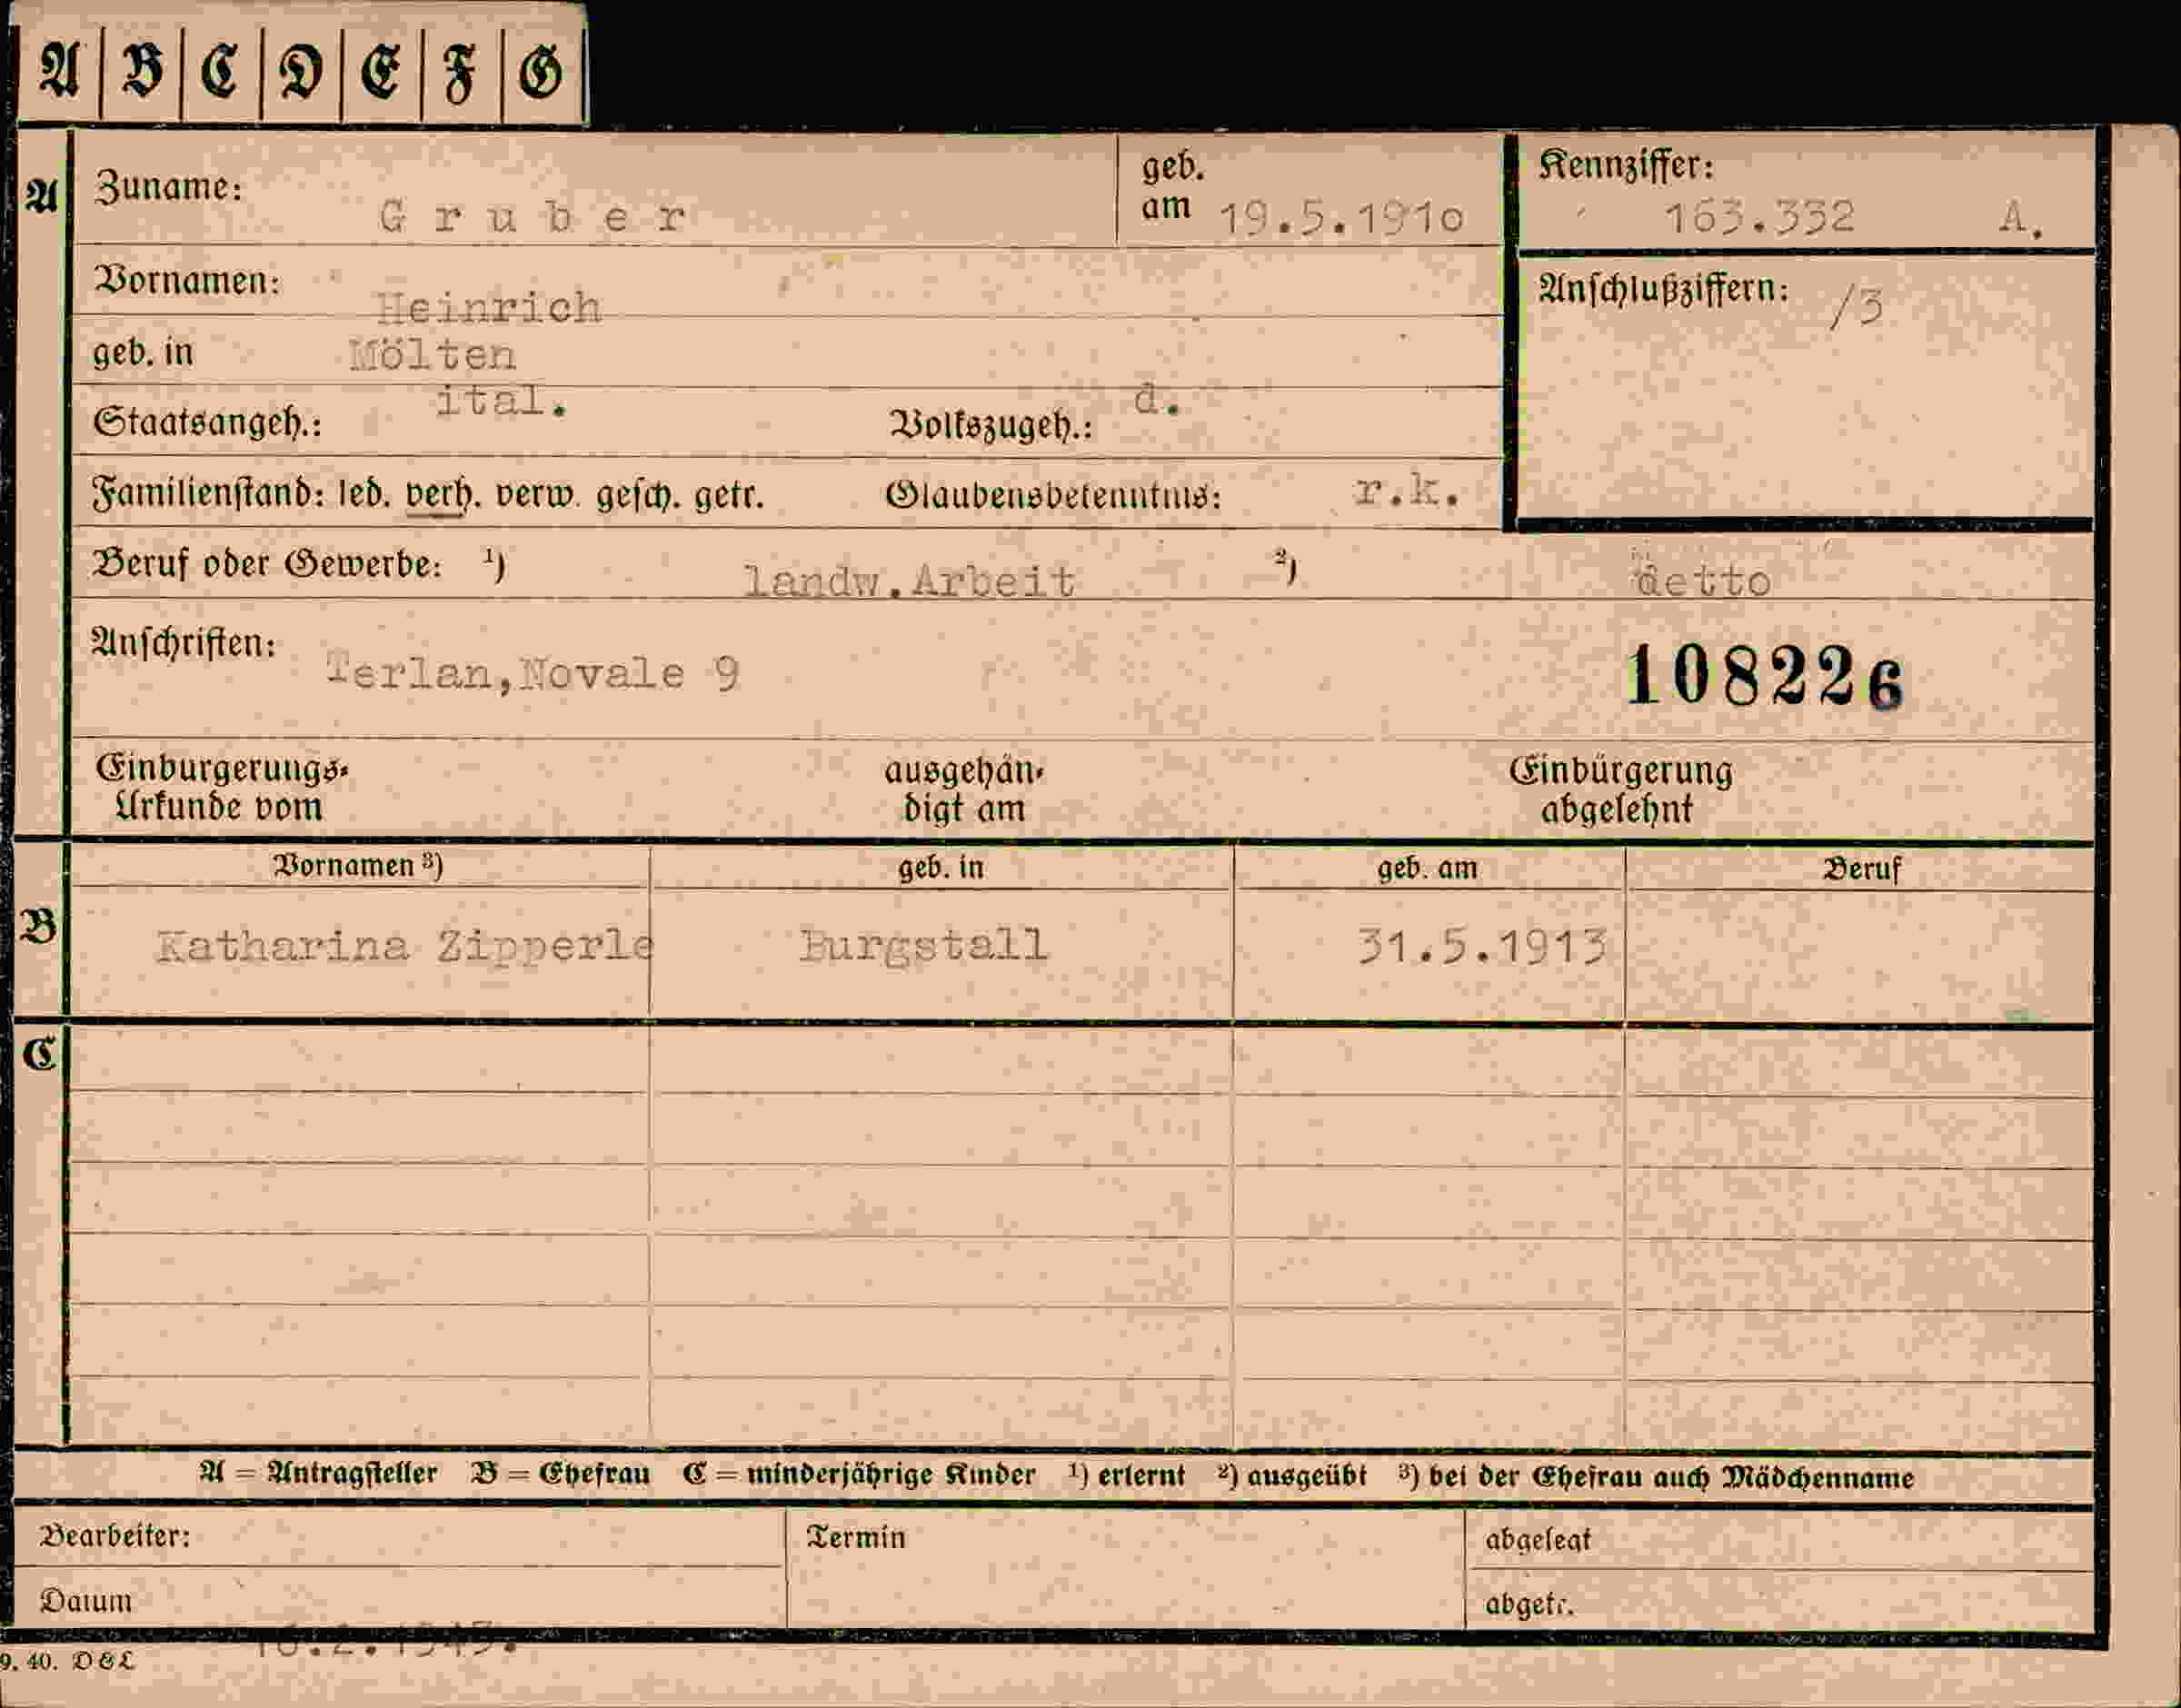 A B C D E F G
A Zuname: Gruber geb. am 19.5.1910 Kennziffer: 163.332 A.
Vornamen: Heinrich Anschlußziffern: /3
geb. in Mölten
Staatsangeh.: ital. Volkszugeh.: d.
Familienstand: led. verh. verw. gesch. getr. Glaubensbekenntnis: r.k.
Beruf oder Gewerbe: ¹) landw.Arbeit ²) detto
Anschriften: Terlan,Novale 9 108226
Einbürgerungs- ausgehän- Einbürgerung
Urkunde vom digt am abgelehnt
Vornamen ³) geb. in geb. am Beruf
B Katharina Zipperle Burgstall 31.5.1913
C
A = Antragsteller B = Ehefrau C = minderjährige Kinder ¹) erlernt ²) ausgeübt ³) bei der Ehefrau auch Mädchenname
Bearbeiter: Termin abgelegt
Datum abgetr.
9. 40. D & L